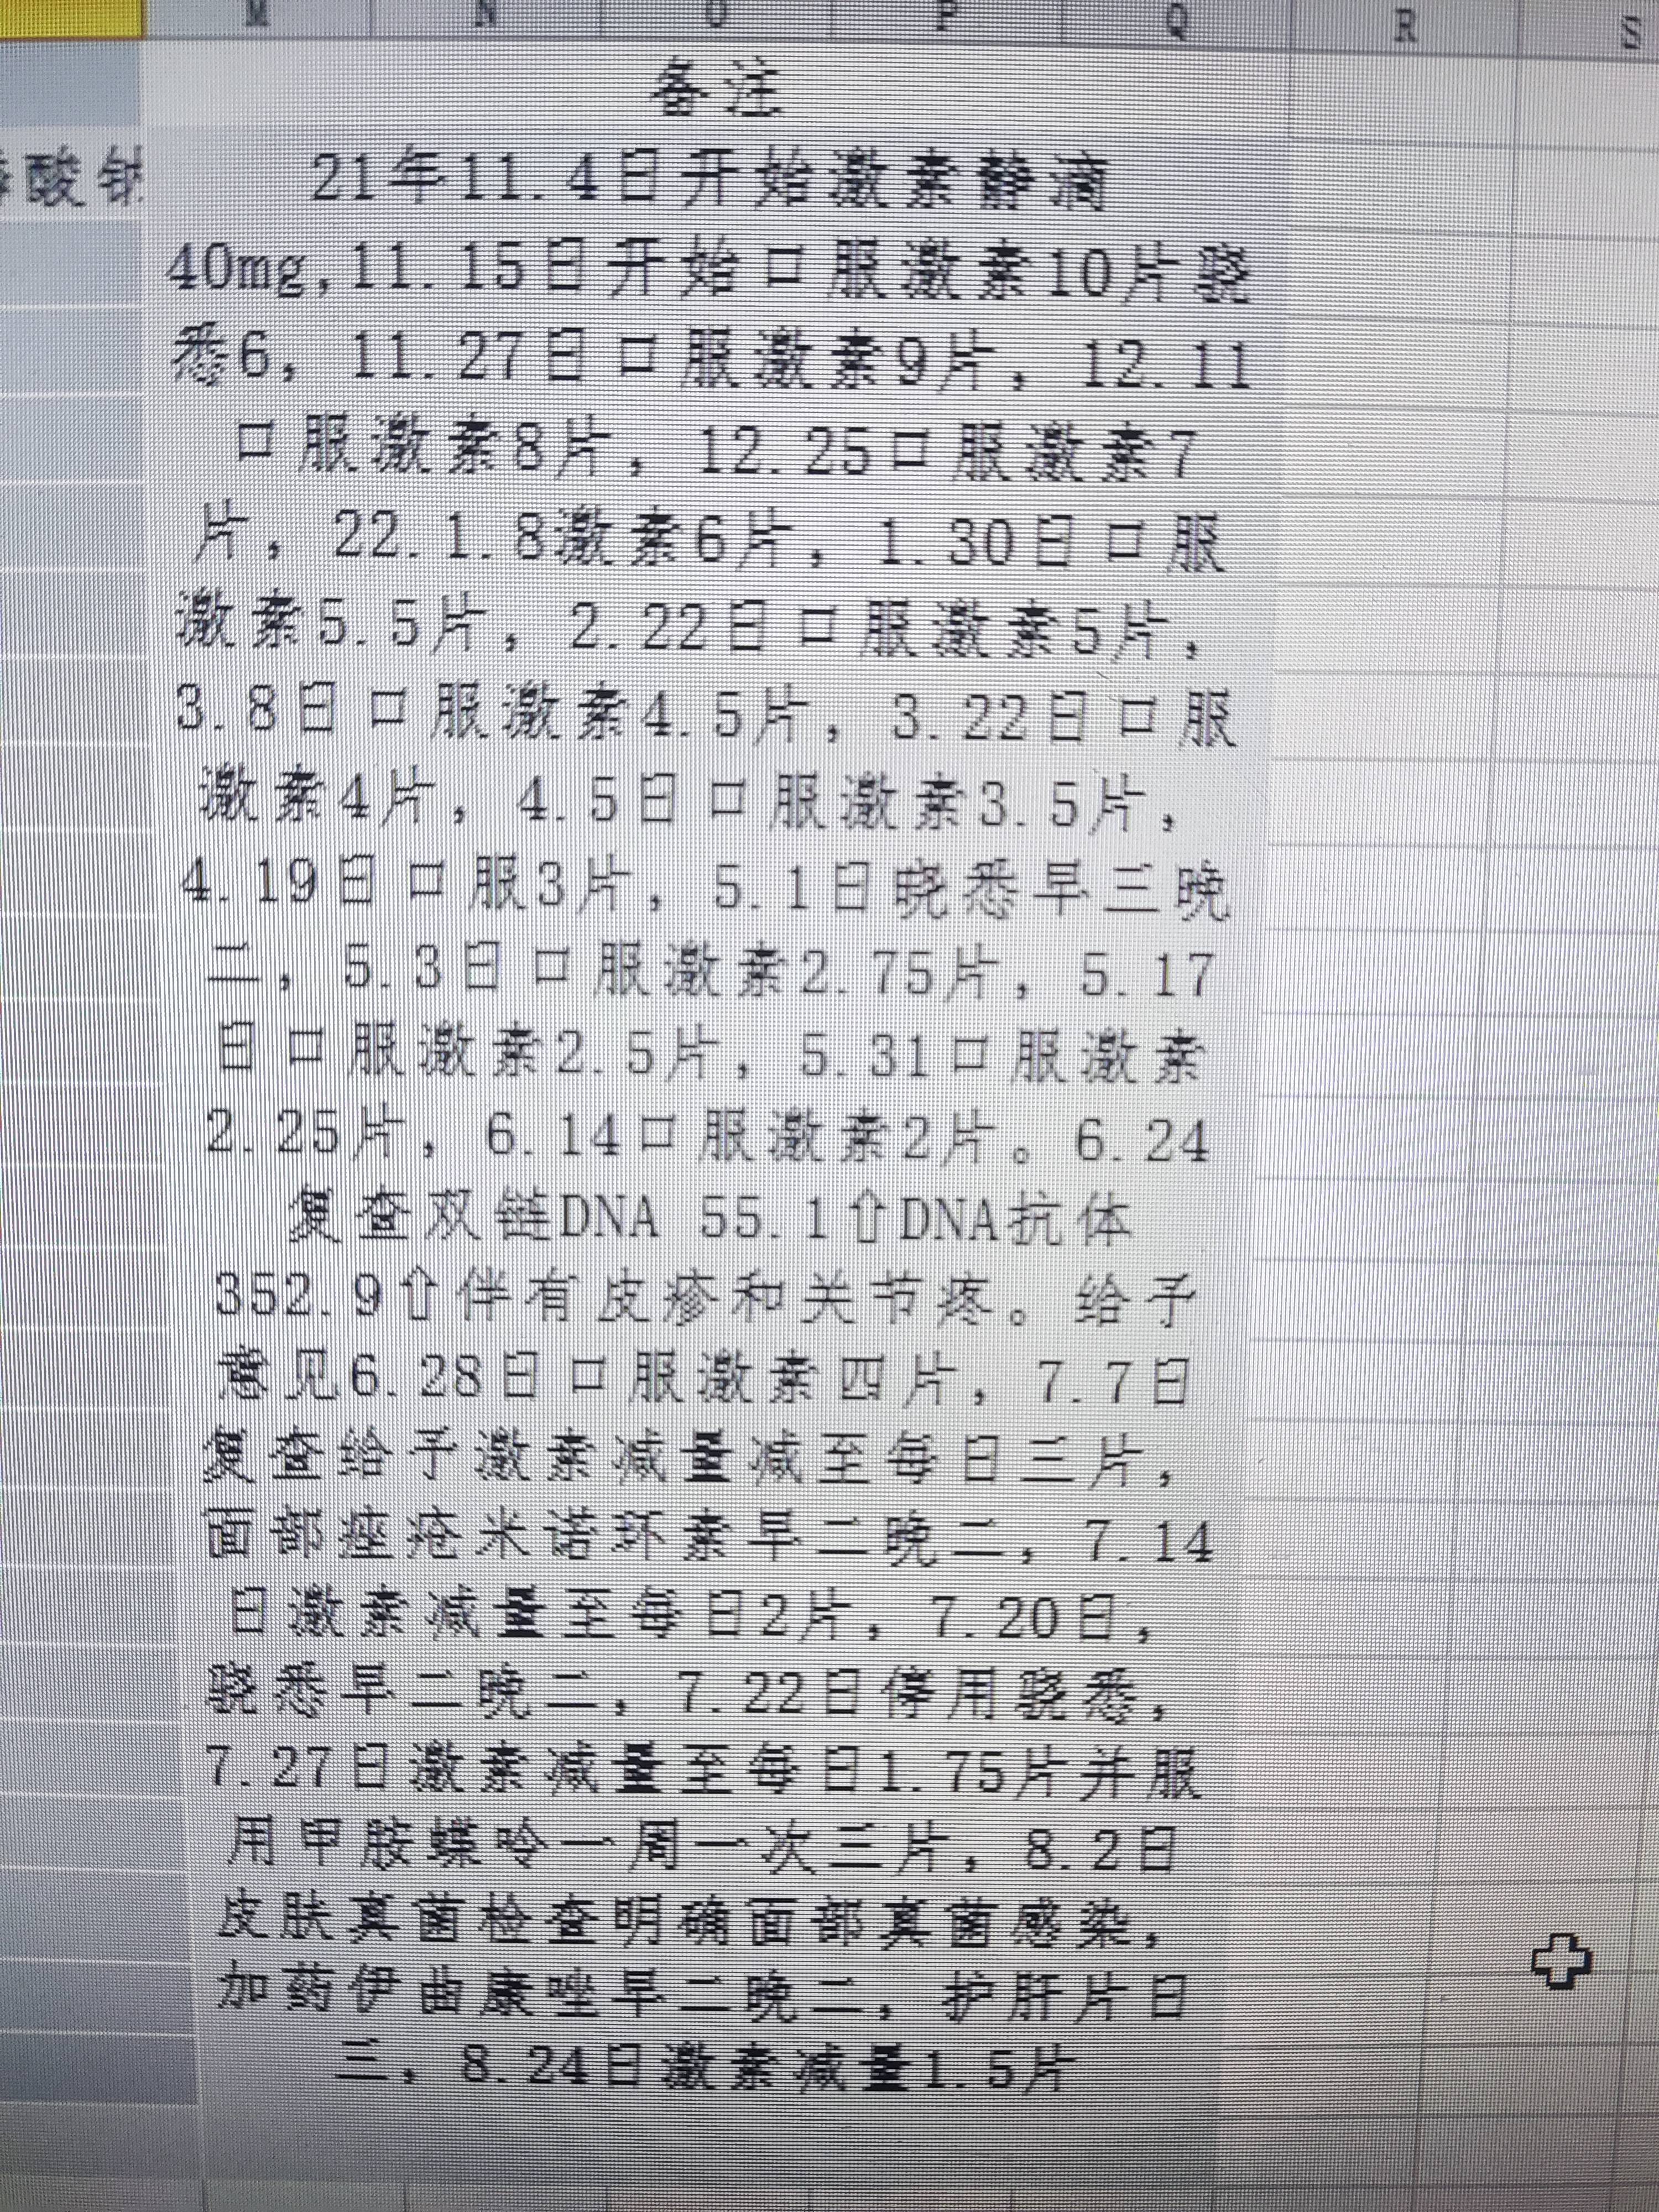 M N O P Q R S
备注
酸钠
21年11.4日开始激素静滴
40mg,11.15日开始口服激素10片骁
悉6，11.27日口服激素9片，12.11
口服激素8片，12.25口服激素7
片，22.1.8激素6片，1.30日口服
激素5.5片，2.22日口服激素5片，
3.8日口服激素4.5片，3.22日口服
激素4片，4.5日口服激素3.5片，
4.19日口服3片，5.1日晓悉早三晚
二，5.3日口服激素2.75片，5.17
日口服激素2.5片，5.31口服激素
2.25片，6.14口服激素2片。6.24
复查双链DNA 55.1⇧DNA抗体
352.9⇧伴有皮疹和关节疼。给予
意见6.28日口服激素四片，7.7日
复查给予激素减量减至每日三片，
面部痤疮米诺环素早二晚二，7.14
日激素减量至每日2片，7.20日，
骁悉早二晚二，7.22日停用骁悉，
7.27日激素减量至每日1.75片并服
用甲胺蝶呤一周一次三片，8.2日
皮肤真菌检查明确面部真菌感染，
加药伊曲康唑早二晚二，护肝片日
三，8.24日激素减量1.5片